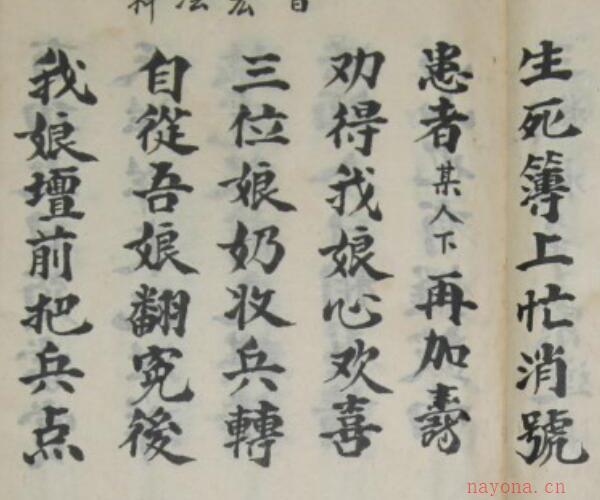 生死簿上忙消號
患者某人下再加壽
劝得我娘心欢喜
三位娘奶收兵轉
自從吾娘翻完後
我娘壇前把兵点
nayona.cn